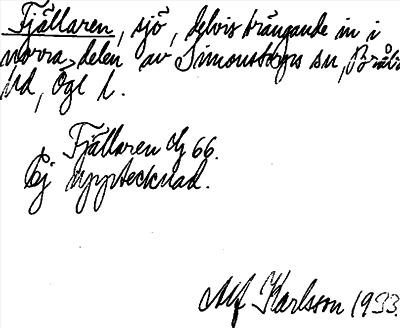 Fjällaren, sjö, delvis trängande in i
norra delen av Simonstorps sn, Bråbo
hd, Ögl l.
Fjällaren Gf 66.
Ej upptecknad.
Alf Karlsson 1933.